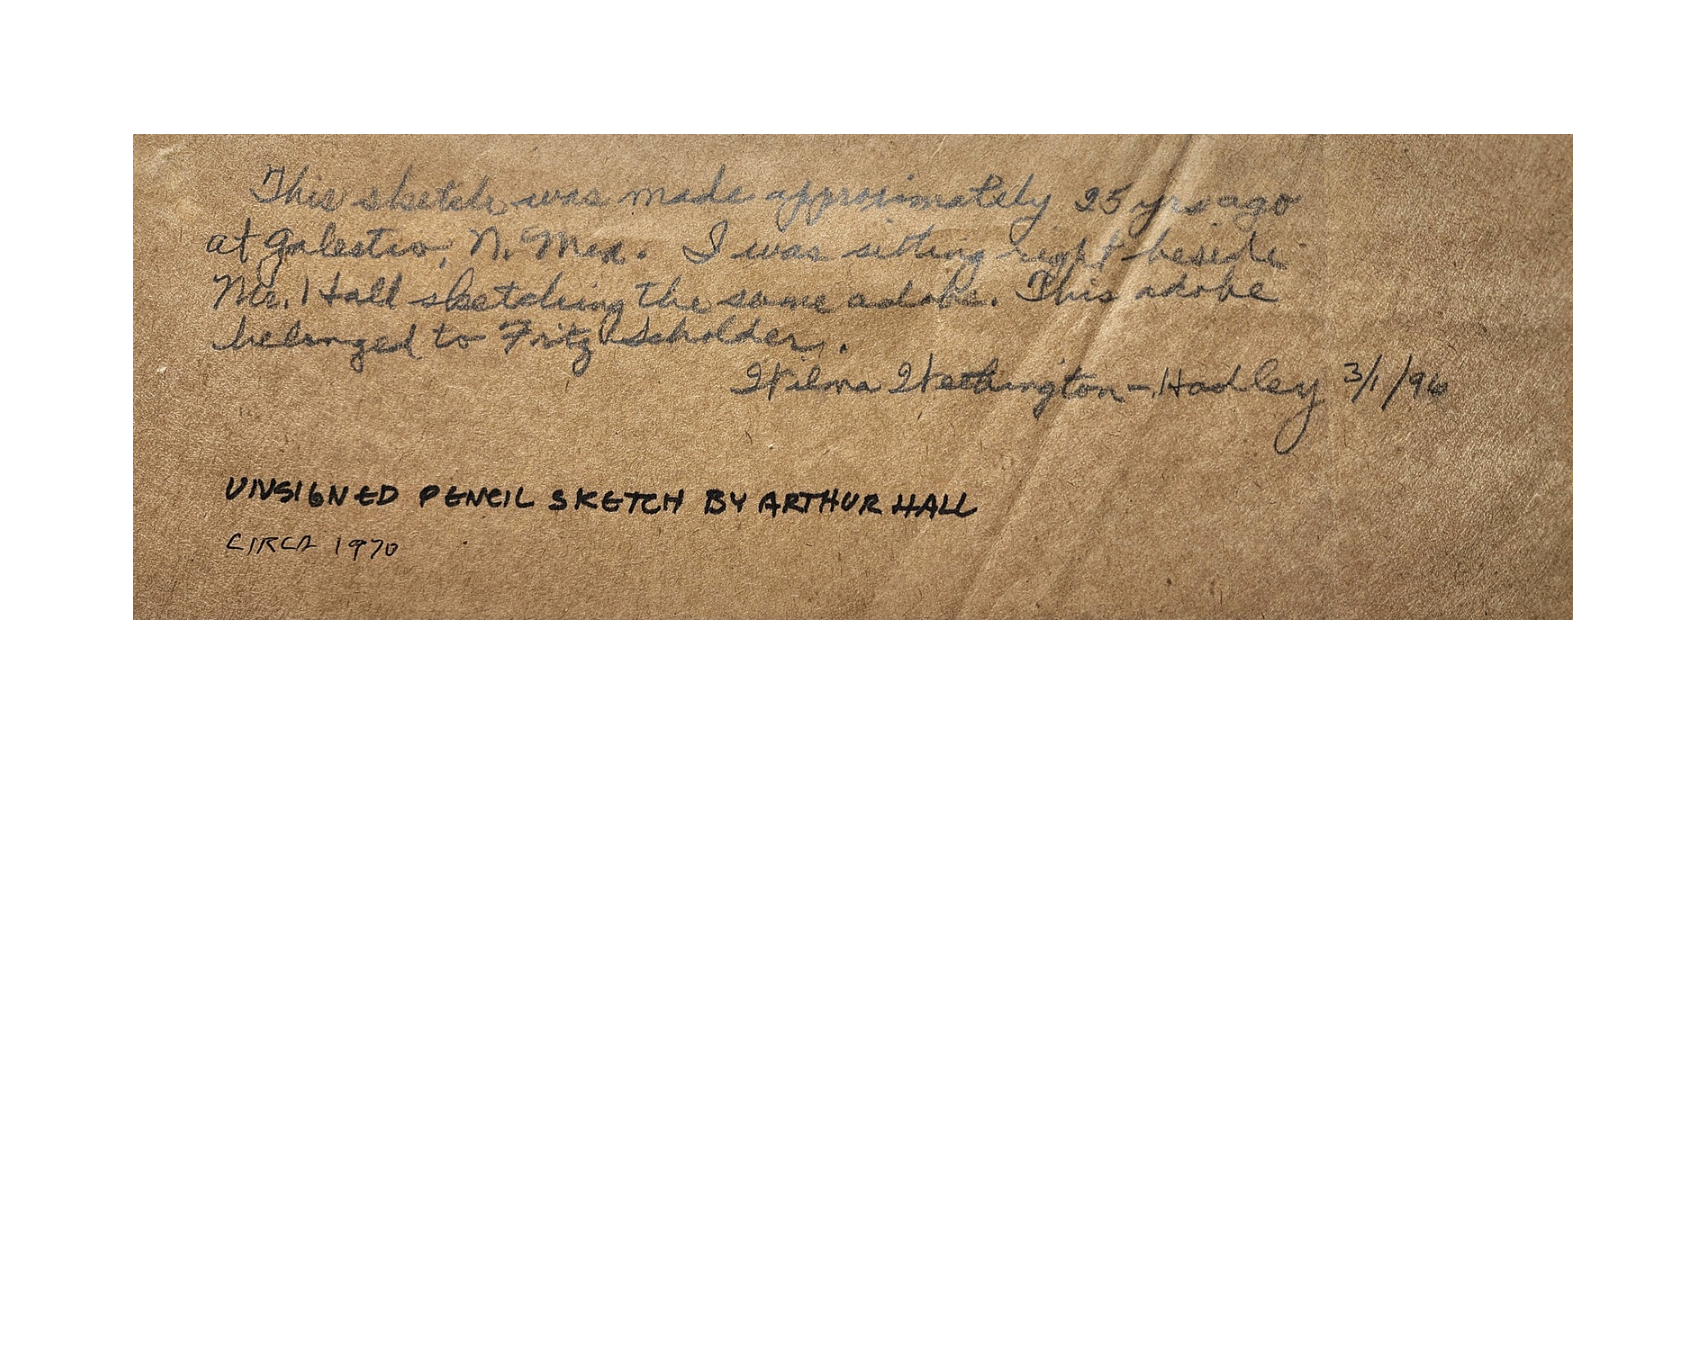 This sketch was made approximately 25 yrs ago
at Galestio, N. Mex. I was sitting right beside
Mr. Hall sketching the same adobe. This adobe
belonged to Fritz Scholder.
Wilma Wethington-Hadley 3/1/96
UNSIGNED PENCIL SKETCH BY ARTHUR HALL
CIRCA 1970